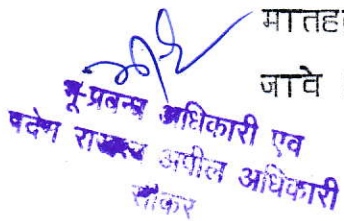 मातहत
जावे
भू-प्रबन्ध अधिकारी एव
पदेन राजस्व अपील अधिकारी
सीकर